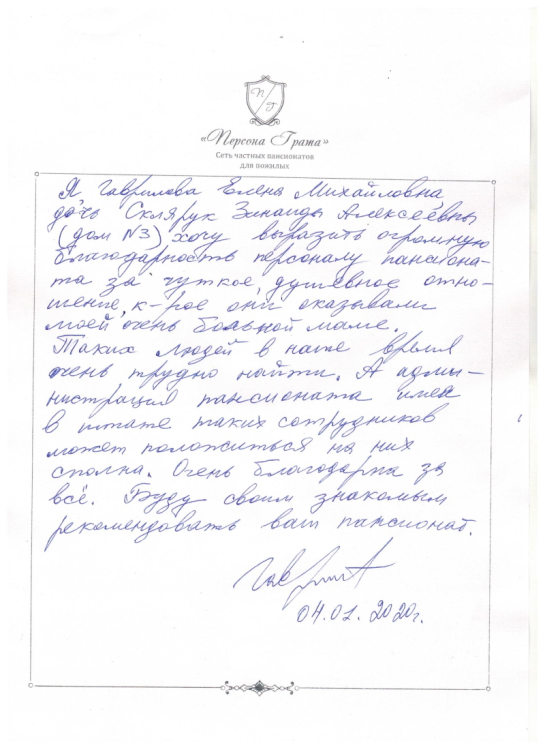 П
Г
«Персона Грата»
Сеть частных пансионатов
для пожилых
Я Гаврилова Елена Михайловна
дочь Склярук Зинаиды Алексеевны
(дом №3) хочу выразить огромную
благодарность персоналу пансиона-
та за чуткое, душевное отно-
шение, к-рое они оказывали
моей очень больной маме.
Таких людей в наше время
очень трудно найти. А адми-
нистрация пансионата имея
в штате таких сотрудников
может положиться на них
сполна. Очень благодарна за
всё. Буду своим знакомым
рекомендовать ваш пансионат.
04.01.2020г.